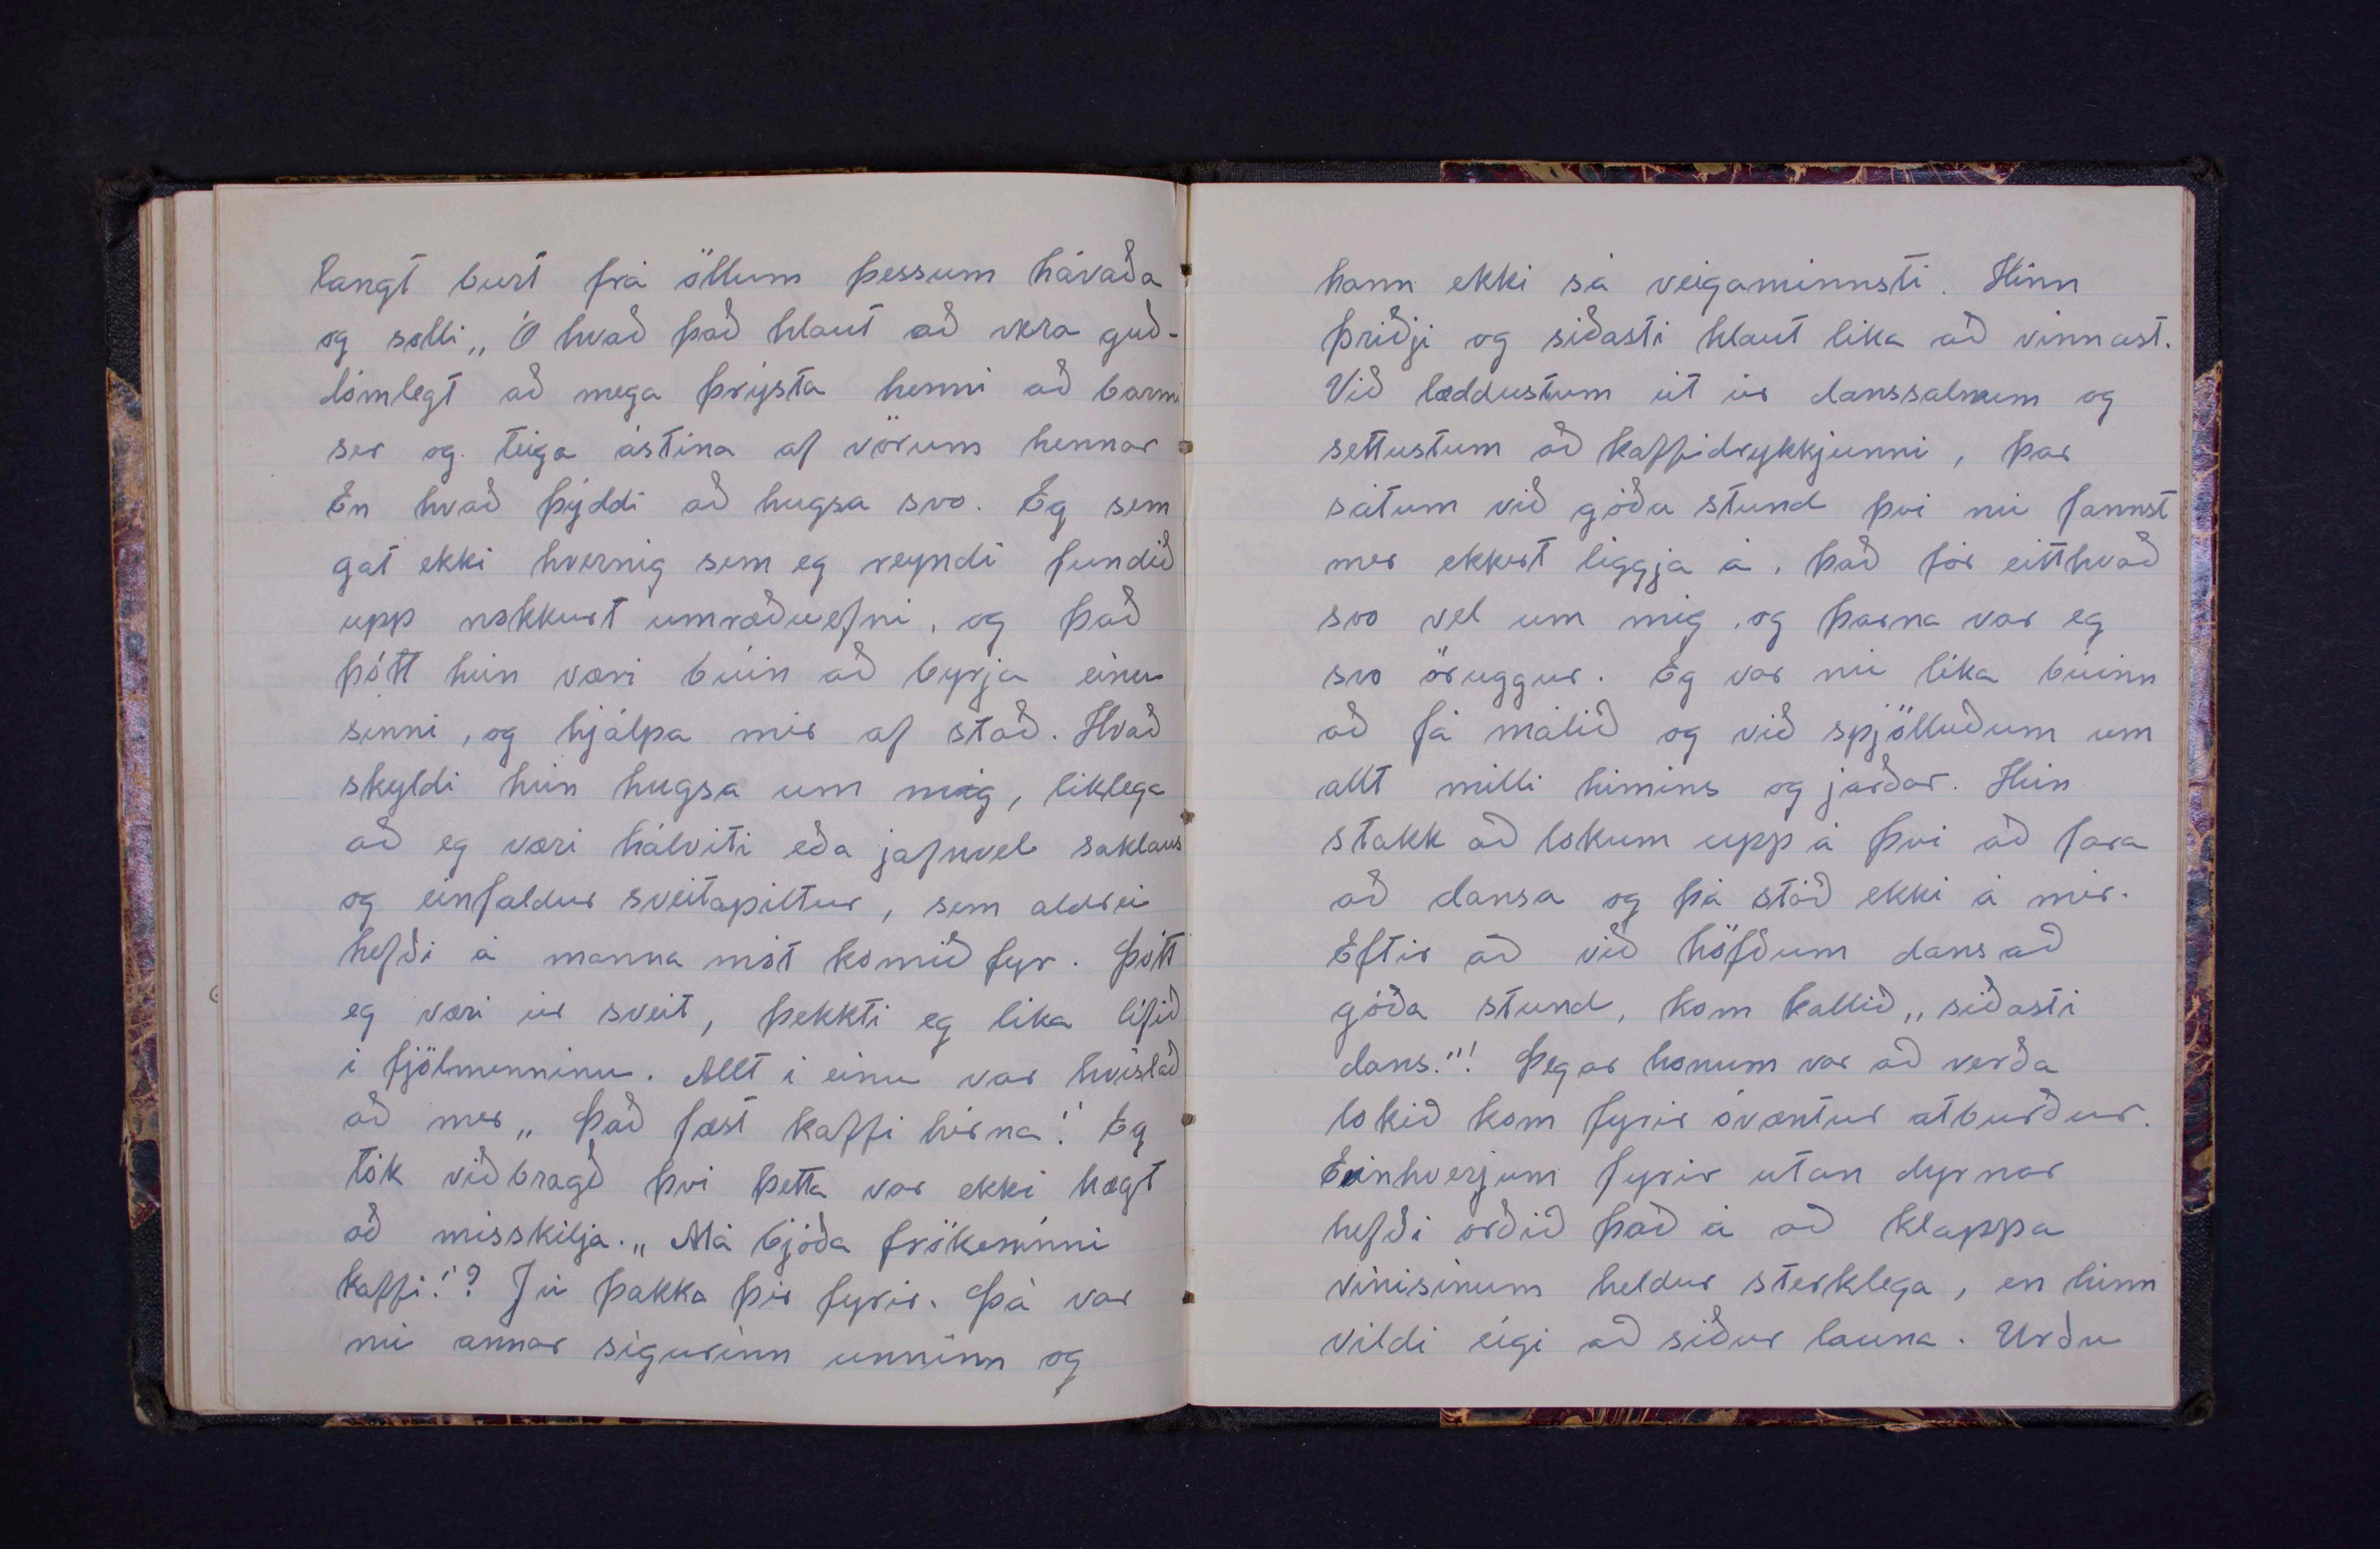 langt burt frá öllum þessum hávaða
og solli „Ó hvað það hlaut að vera guð-
dómlegt að mega þrýsta henni að barmi
ser og teiga ástina af vörum hennar
En hvað þýddi að hugsa svo. Eg sem
gat ekki hvernig sem eg reyndi fundið
upp nokkurt umræðuefni, og það
þótt hún væri búin að byrja einu
sinni, og hjálpa mér af stað. Hvað
skyldi hún hugsa um mig, liklega
að eg væri hálviti eða jafnvel saklaus
og einfaldur sveitapiltur, sem aldrei
hefði á manna mót komið fyr. Þótt
eg væri úr sveit, þekkti eg lika lífið
í fjölmenninu. Allt í einu var hvíslað
að mer „Það fæst kaffi hérna!" Eg
tók viðbragð því þetta var ekki hægt
að misskilja. „Má bjóða frökeninni
kaffi!"? Jú þakka þér fyrir. Þá var
nú annar sigurinn unninn og
hann ekki sá veigaminnsti. Hinn
þriðji og síðasti hlaut líka að vinnast.
Við læddustum út úr danssalnum og
settustum að kaffidrykkjunni, þar
sátum við góða stund því nú fannst
mer ekkert liggja á. Það fór eitthvað
svo vel um mig, og þarna var eg
svo öruggur. Eg var nú líka búinn
að fá málið og við spjölluðum um
allt milli himins og jarðar. Hún
stakk að lokum upp á því að fara
að dansa og þá stóð ekki á mér.
Eftir að við höfðum dansað
góða stund, kom kallið „síðasti
dans."! Þegar honum var að verða
lokið kom fyrir óvæntur atburður.
Einhverjum fyrir utan dyrnar
hefði orðið það á að klappa
vinisinum heldur sterklega, en hinn
vildi eigi að síður launa. Urðu